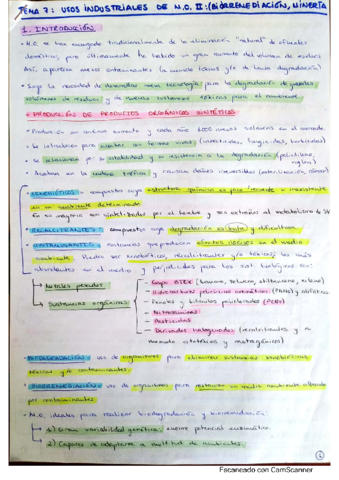 TEMA 7: USOS INDUSTRIALES DE M.O. II: (BIORREMEDIACIÓN, MINERÍA
1. INTRODUCCIÓN
· M.O. se han encargado tradicionalmente de la eliminación "natural" de efluentes
domésticos, pero últimamente ha habido un gran aumento del volumen de residuos
Así, aparecen nuevos contaminantes (a menudo tóxicos y/o de baja degradación)
· Surge la necesidad de desarrollar nueva tecnología para la degradación de grandes
volúmenes de residuos y de nuevas sustancias tóxicas para el
PRODUCCIÓN DE PRODUCTOS ORGÁNICOS SINTÉTICOS
· Producción en continuo aumento y cada año 1000 nuevos salen en el mercado.
· Se introducen para (insecticidas, fungicidas, herbicidas)
· Se por su estabilidad y su resistencia a la degradación (polietileno,
nylon)
· Acaban en la cadena trófica y causan daños irreversibles
- XENOBIÓTICOS = compuestos cuya estructura química es poco frecuente o inexistente
en un ambiente determinado
En su mayoría son sintetizados por el hombre y son extraños al metabolismo de
- RECALCITRANTES = compuestos cuya degradación es lenta y dificultosa.
- CONTAMINANTES = sustancias que producen efectos nocivos en el medio
ambiente. Pueden ser xenobióticos, recalcitrantes y/o tóxicos; los más
abundantes en el medio y perjudiciales para los sist. biológicos son:
→ Metales pesados
→ Sustancias orgánicas
— Grupo BTEX (benceno, tolueno, etilbenceno, xileno)
— Hidrocarburos policíclicos aromáticos (PAHs) y alifáticos
— Fenoles y bifenilos policlorados (PCBs)
— Nitroaromáticos
— Pesticidas
— Derivados halogenados (recalcitrantes y a
menudo citotóxicos y mutagénicos)
- BIODEGRADACIÓN = uso de organismos para eliminar sustancias xenobióticas,
tóxicas y/o contaminantes.
- BIORREMEDIACIÓN = uso de organismos para restaurar un medio ambiente alterado
por contaminantes.
· M.O. ideales para realizar biodegradación y biorremediación:
1) Gran variabilidad genética: enorme potencial enzimático
2) Capaces de adaptarse a multitud de ambientes.
1
Escaneado con CamScanner